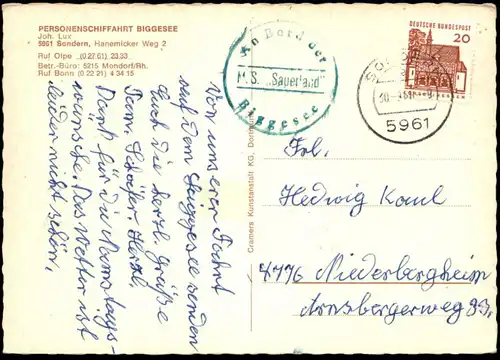 PERSONENSCHIFFAHRT BIGGESEE
Joh. Lux
5961 Sondern, Hanemicker Weg 2
Ruf Olpe (0 27 61) 23 33
Betr.-Büro: 5215 Mondorf/Rh.
Ruf Bonn (0 22 21) 4 34 15
An Bord der
M.S. „Sauerland"
Biggesee
5961
DEUTSCHE BUNDESPOST
20
Cramers Kunstanstalt KG, Dortmund
Von unserer Fahrt
auf dem Biggesee senden
Euch die herzl. Grüße
Fam. Schäfer. Herzl.
Dank für die Namstags-
wünsche. Das Wetter ist
leider nicht schön.
Frl.
Hedwig Kaul
4776 Niederbergheim
Arnsbergerweg 93.